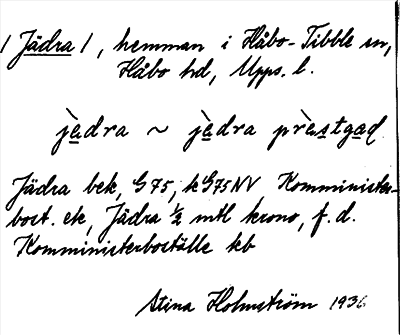 / Jädra /, hemman i Håbo-Tibble sn,
Håbo hd, Upps. l.
jèdra ~ jèdra prèstgad
Jädra bek, G75, k G75NV Komminister-
bost. ek, Jädra 1/2 mtl krono, f.d.
Komministerboställe kb
Stina Holmström 1936